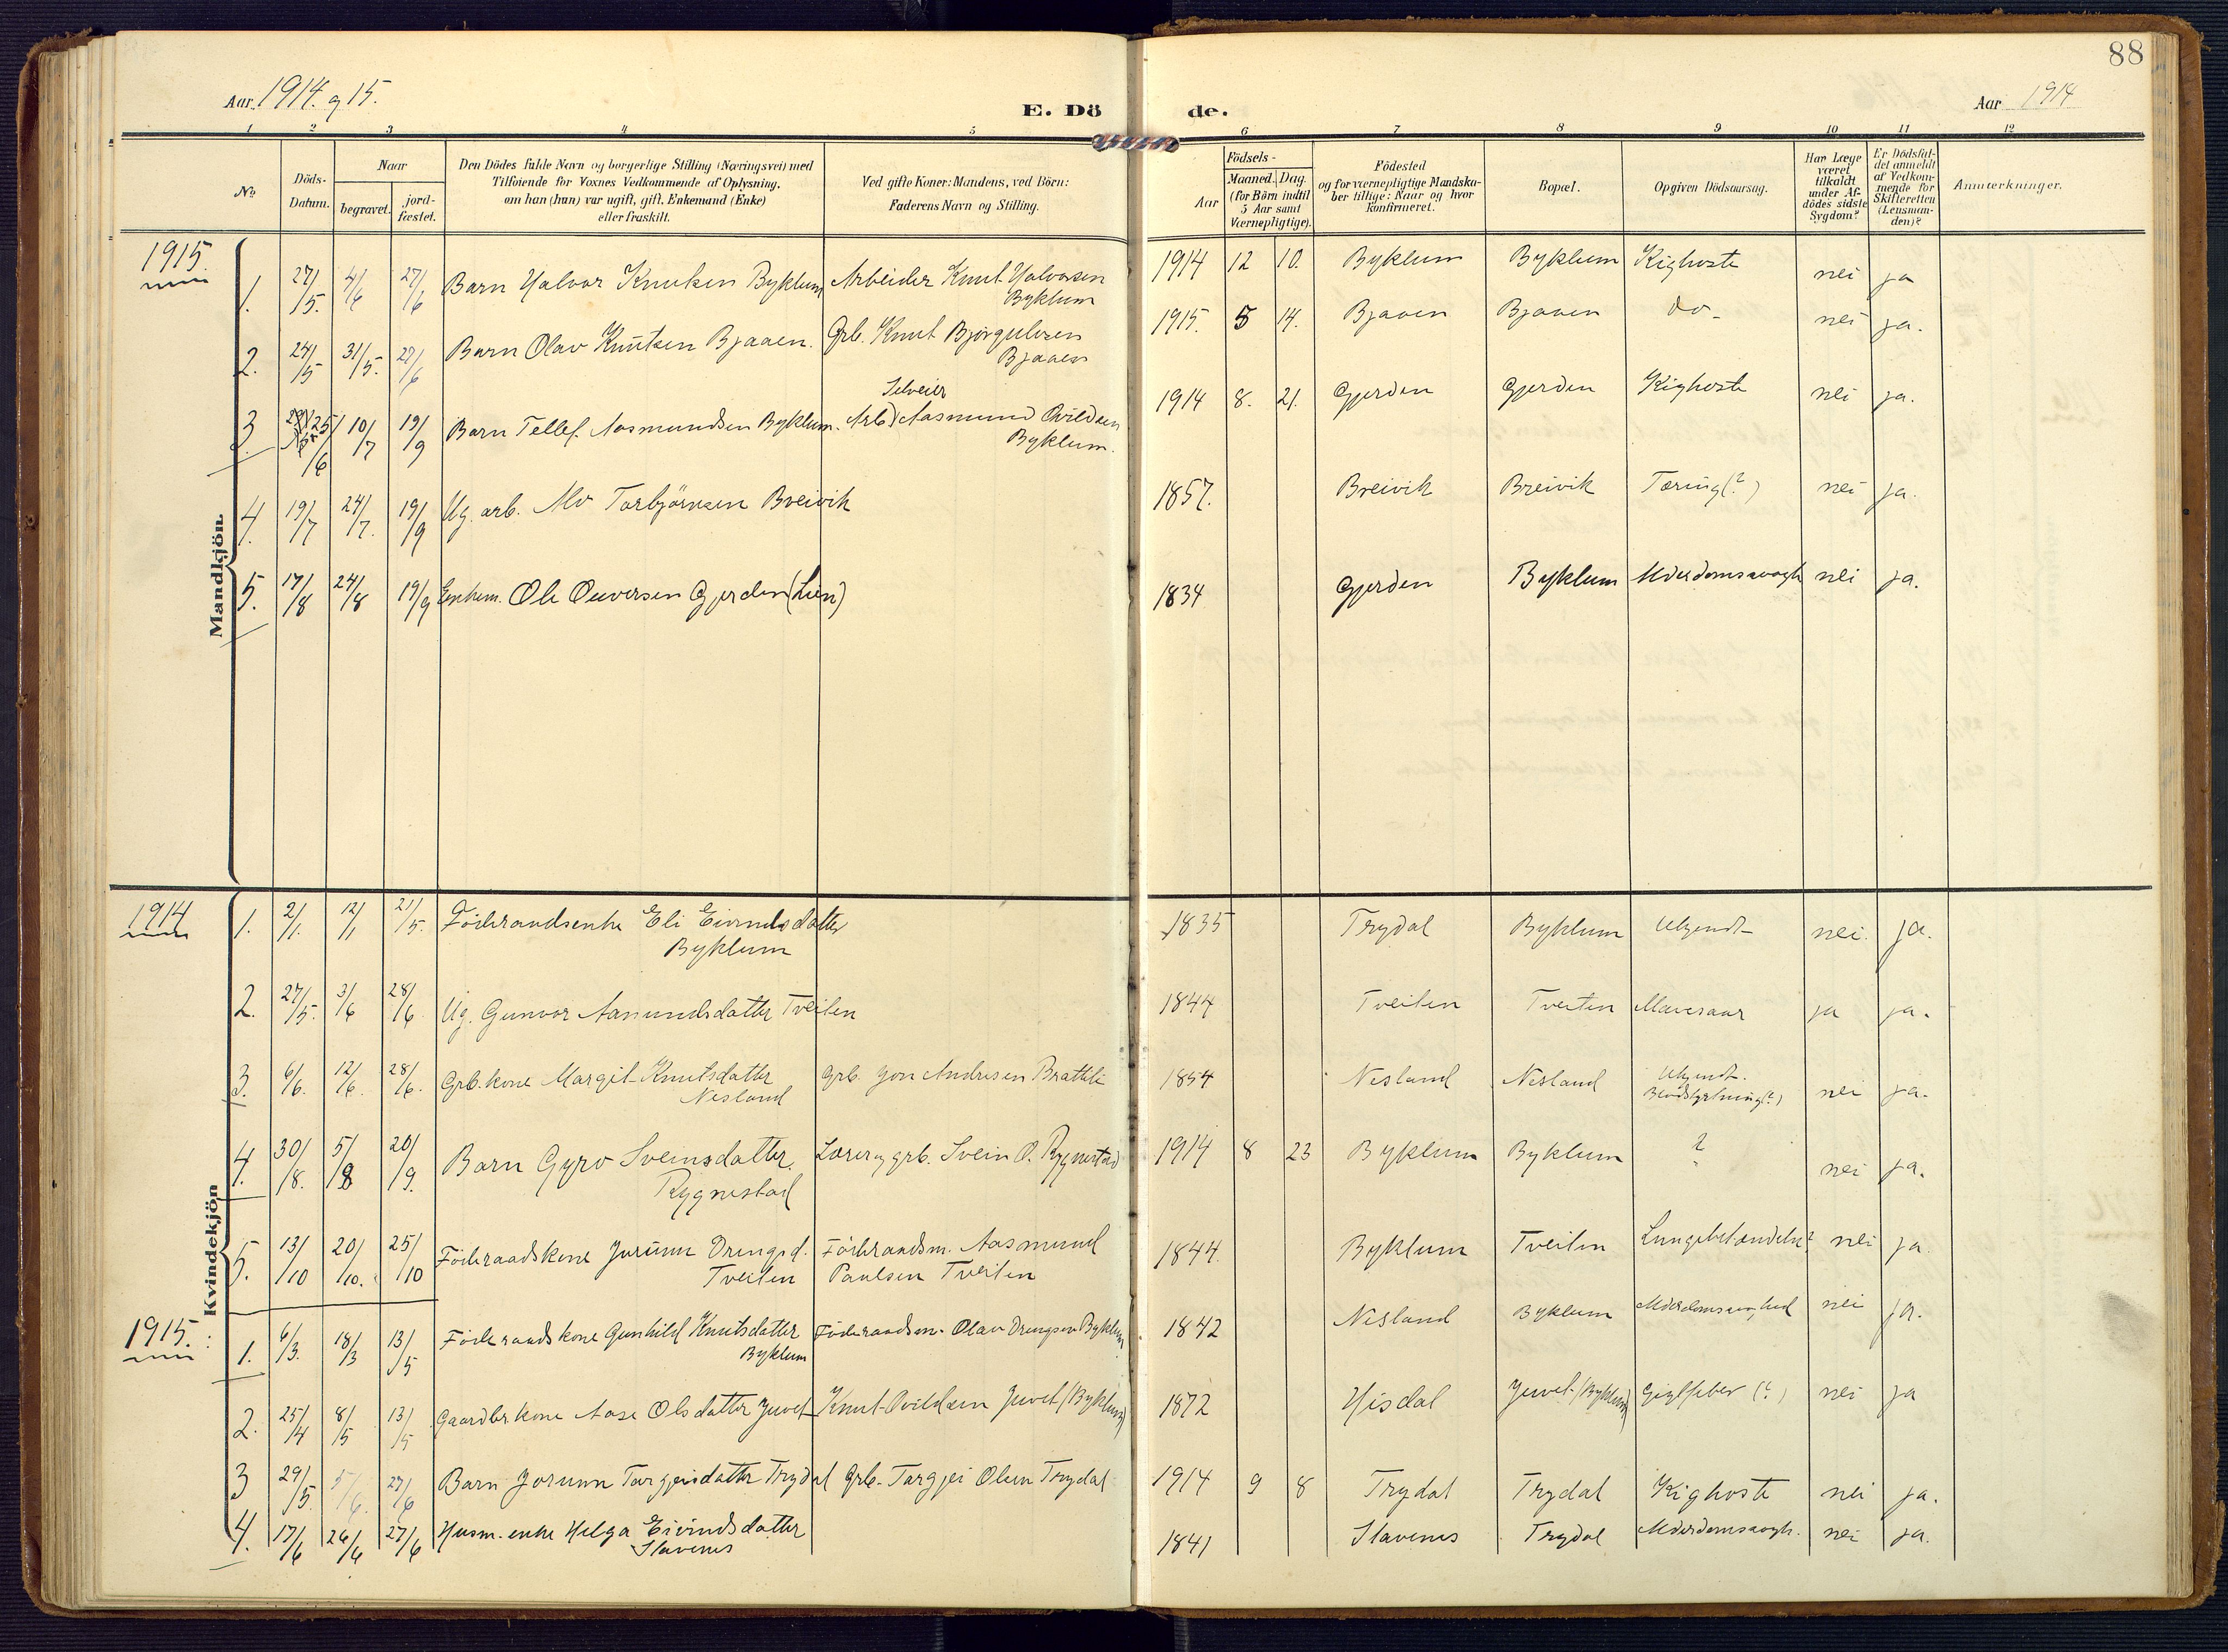 88
Aar 1914. og 15.
E. Dö
de.
Aar 1914
1 2 3 4 5 6 7 8 9 10 11 12
No
Döds-
Datum.
Naar
begravet.
jord-
fæstet.
Den Dödes fulde Navn og borgerlige Stilling (Næringsvei) med
Tilföiende for Voxnes Vedkommende af Oplysning,
om han (hun) var ugift, gift, Enkemand (Enke)
eller fraskilt.
Ved gifte Koner: Mandens, ved Börn:
Faderens Navn og Stilling.
Födsels-
Aar
Maaned. Dag.
(for Börn indtil
5 Aar samt
Værnepligtige).
Födested
og for værnepligtige Mandska-
ber tillige: Naar og hvor
konfirmeret.
Bopæl.
Opgiven Dödsaarsag.
Har Læge
været
tilkaldt
under Af-
dödes sidste
Sygdom?
Er Dödsfal-
det anmeldt
af Vedkom-
mende for
Skifteretten
(Lensman-
den)?
Anmærkninger.
Mandkjön.
1915.
1. 27/5. 4/6 27/6 Barn Halvor Knutsen Byklum Arbeider Knut Halvorsen 1914 12 10. Byklum Byklum Kighoste nei ja
Byklum
2. 24/5 31/5. 27/6 Barn Olav Knutsen Bjaaen. Grb. Knut Bjørgulvsen 1915. 5 14. Bjaaen Bjaaen do- nei ja.
Bjaaen
Selveier
3. 25/6 10/7 19/9 Barn Tellef. Aasmundsen Byklum. Arb) Aasmund Ovildsen 1914 8. 21. Gjerden Gjerden Kighoste nei ja.
Byklum.
4. 19/7 24/7. 19/9 Ug. arb. Alv Torbjörnsen Breivik 1857. Breivik Breivik Tæring (?) nei ja.
5. 17/8 24/8 19/9 Enkem. Ole Ouversen Gjerden (Lien) 1834 Gjerden Byklum Alderdomssvagh nei ja.
Kvindekjön
1914
1. 2/1. 12/1 21/5. Föderaadsenke Eli Eivindsdatter 1835 Trydal Byklum Ukjendt nei. ja.
Byklum
2. 27/5. 3/6 28/6 Ug. Gunvor Aasmundsdatter Tveiten 1844 Tveiten Tveiten Mavesaar ja ja.
3. 6/6. 12/6. 28/6. Grb. kone Margit Knutsdatter Grb. Jon Andresen Bratteli 1854 Nesland Nesland Ukjendt. nei ja.
Nesland Blodstyrtning (?)
4. 30/8. 5/9 20/9. Barn Gyro Sveinsdatter. Lærer og grb. Svein O. Rygnestad 1914 8 23 Byklum Byklum ? nei ja.
Rygnestad
5. 13/10 20/10. 25/10 Föderaadskone Jorunn Drengsd. Föderaadsm. Aasmund 1844. Byklum Tveiten Lungebetændelse? nei ja
Tveiten Paulsen Tveiten
1915.
1. 6/3. 18/3 13/5 Föderaadskone Gunhild Knutsdatter Föderaadsm. Olav Drengsen Byklum 1842 Nesland Byklum Alderdomssvaghed nei ja.
Byklum
2. 25/4 8/5 13/5 Gaardbr kone Aase Olsdatter Juvet Knut Ovildsen Juvet (Byklum) 1872 Hisdal Juvet (Byklum) Gigtfeber (?) nei ja
3 29/5. 5/6. 27/6 Barn Jorunn Targjeisdatter Trydal Grb. Targjei Olsen Trydal 1914 9 8 Trydal Trydal Kighoste nei ja.
4. 17/6 26/6 27/6 Husm. enke Helga Eivindsdatter 1841 Stavenes Trydal Alderdomssvagh. nei ja.
Stavenes